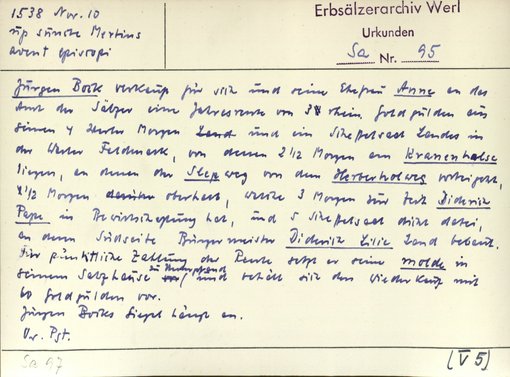 1538 Nov. 10
up sunte Mertins
avent episcopi
Erbsälzerarchiv Werl
Urkunden
Sa Nr. 95
Jürgen Bock verkauft für sich und seine Ehefrau Anne an das
Amt der Sälzer eine Jahresrente von 3 rhein. Goldgulden aus
seinen 4 Werler Morgen Land und ein Scheffelsaat Landes in
der Werler Feldmark, von denen 2 1/2 Morgen am Kranenhalse
liegen, an denen der Slepweg von dem Herberholweg vorbeigeht,
1 1/2 Morgen oberhalb, welche 3 Morgen zur Zeit Diderich
Pape in Bewirtschaftung hat, und 5 Scheffelsaat dicht dabei,
an deren Südseite Bürgermeister Diderich Lilie Land bebaut.
Für pünktliche Zahlung der Rente setzt er seine molde in
seinem Salzhause zu Unterpfand und behält sich den Wiederkauf mit
60 Goldgulden vor.
Jürgen Bocks Siegel hängt an.
Or. Pgt.
Sa 97
(V 5)